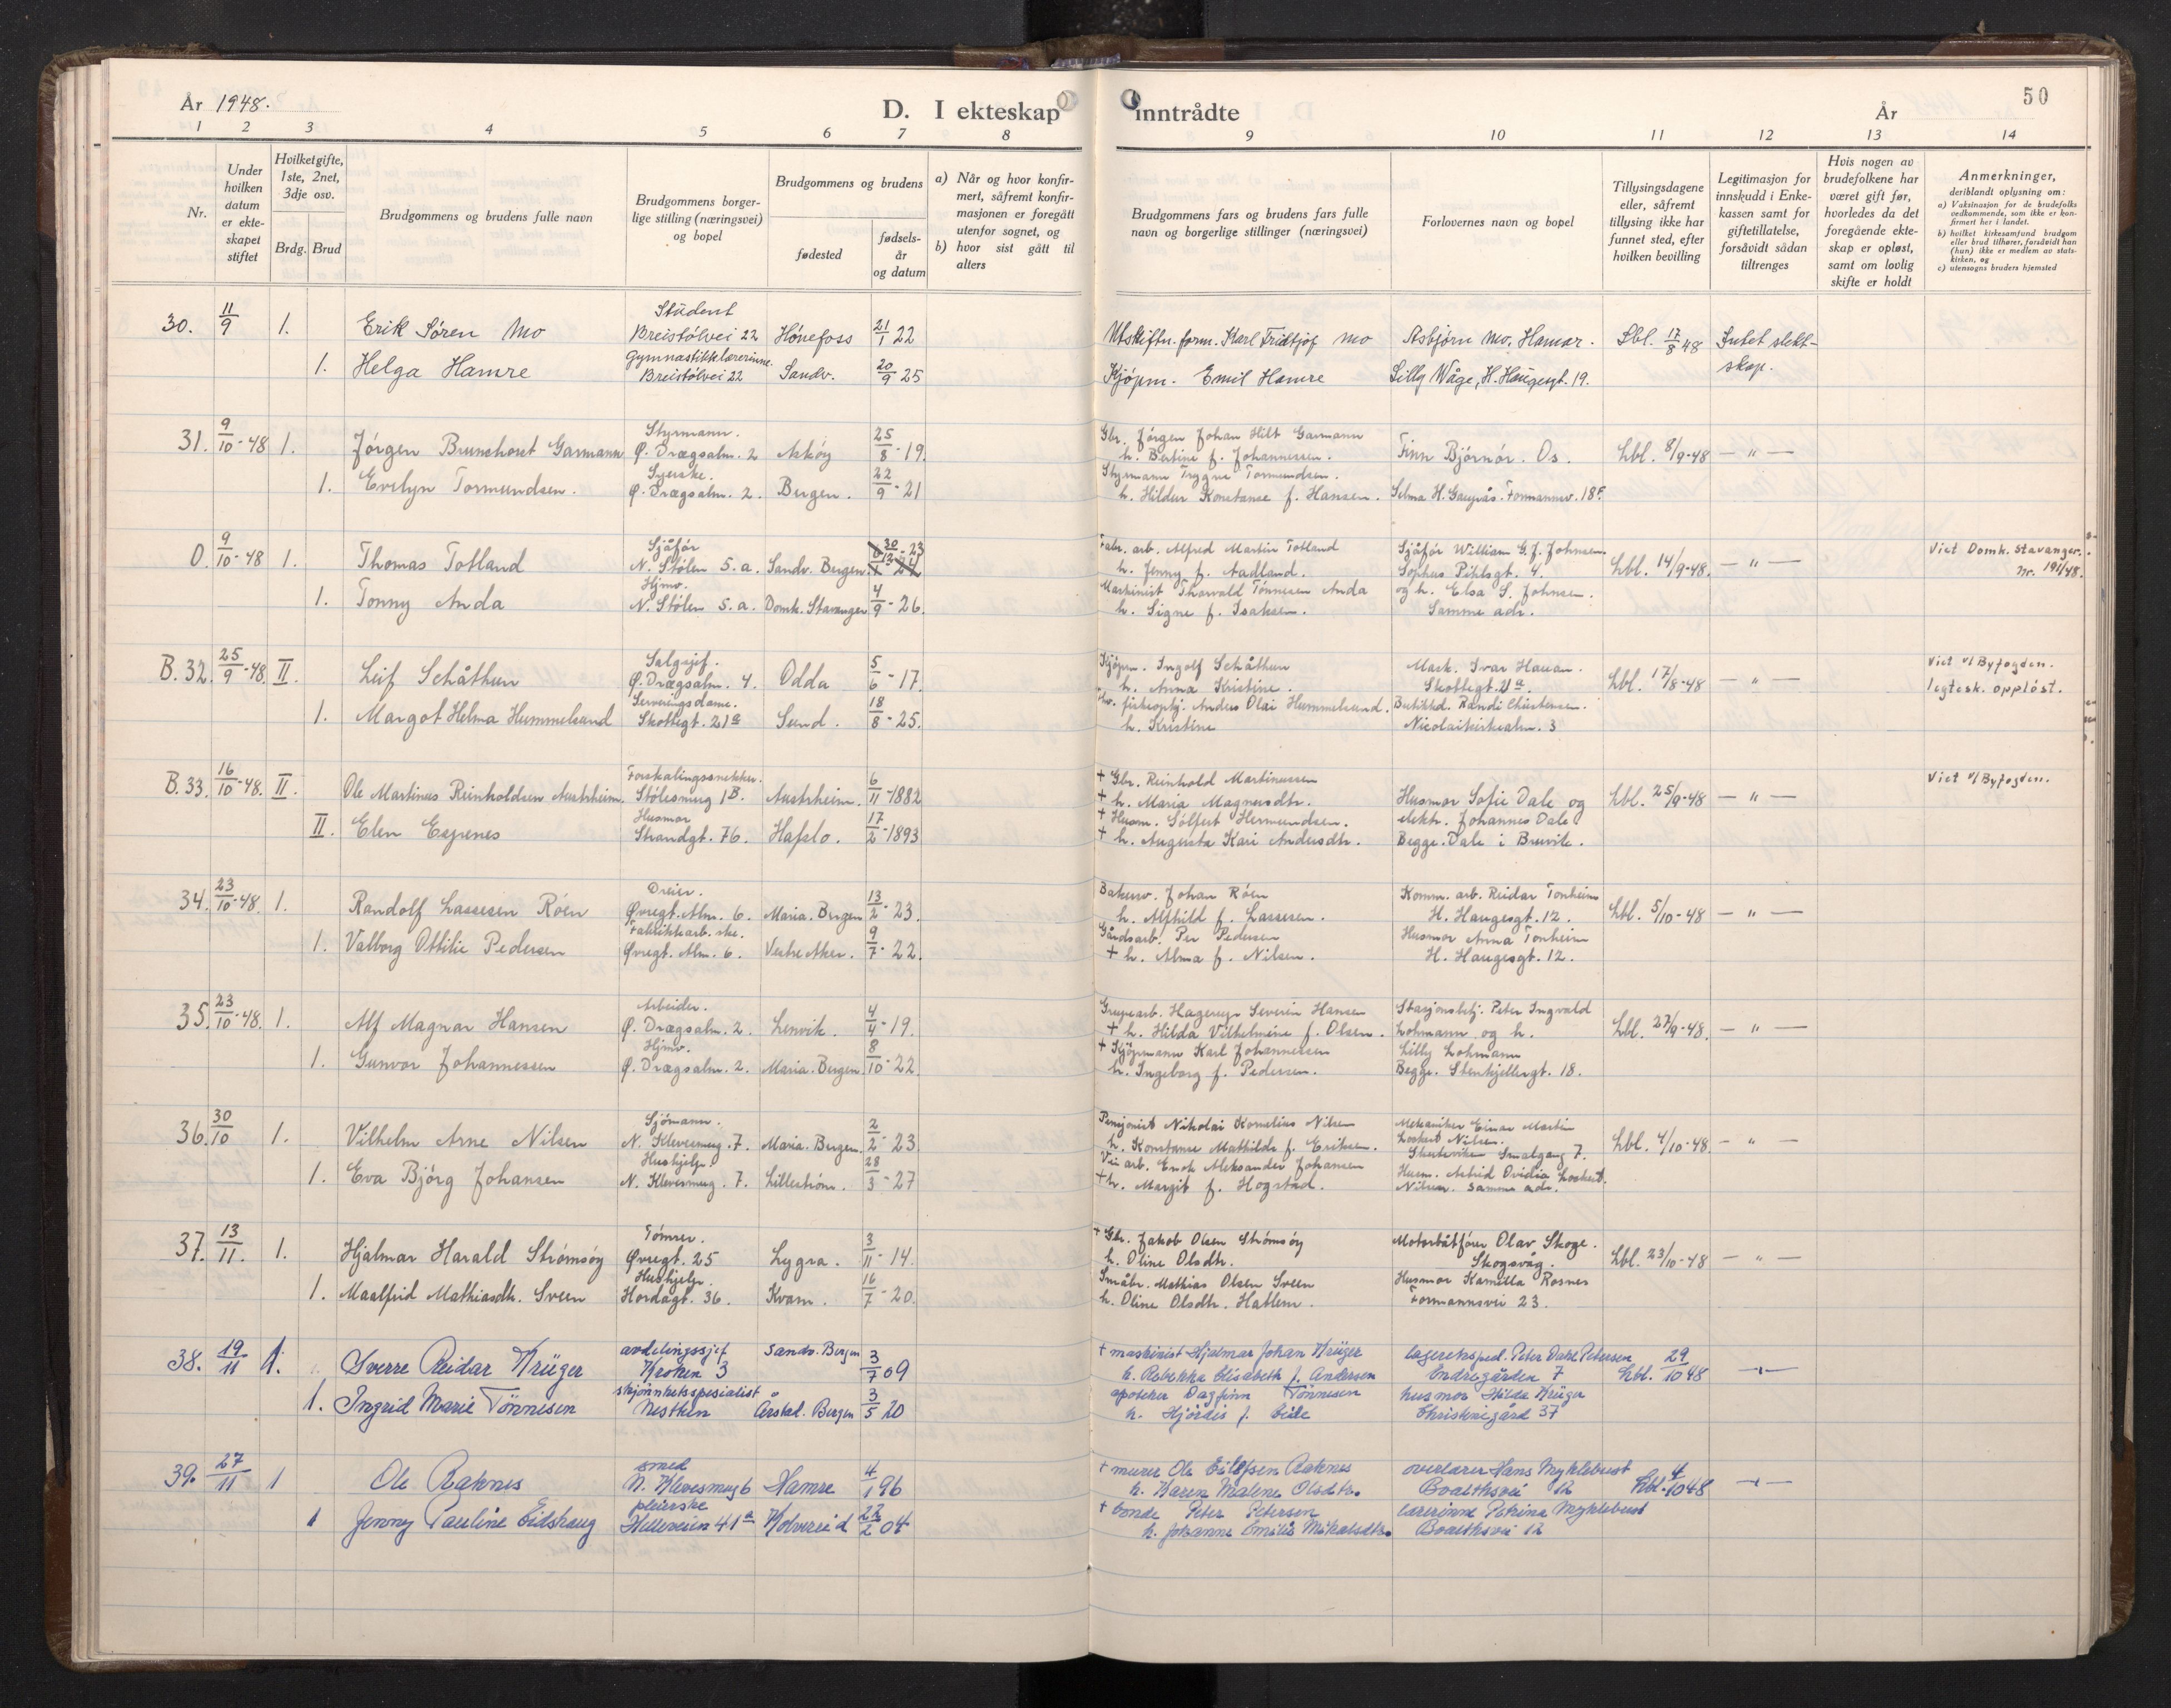 År 1948.
D. I ekteskap inntrådte
År
50
1 2 3 4 5 6 7 8 9 10 11 12 13 14
Nr.
Under hvilken datum er ekteskapet stiftet
Hvilket gifte, 1ste, 2net, 3dje osv.
Brdg. Brud
Brudgommens og brudens fulle navn
Brudgommens borgerlige stilling (næringsvei) og bopel
Brudgommens og brudens
fødested
fødselsår og datum
a) Når og hvor konfirmert, såfremt konfirmasjonen er foregått utenfor sognet, og
b) hvor sist gått til alters
Brudgommens fars og brudens fars fulle navn og borgerlige stillinger (næringsvei)
Forlovernes navn og bopel
Tillysingsdagene eller, såfremt tillysing ikke har funnet sted, efter hvilken bevilling
Legitimasjon for innskudd i Enkekassen samt for giftetillatelse, forsåvidt sådan tiltrenges
Hvis nogen av brudefolkene har været gift før, hvorledes da det foregående ekteskap er opløst, samt om lovlig skifte er holdt
Anmerkninger,
deriblandt oplysning om:
a) Vaksinasjon for de brudefolks vedkommende, som ikke er konfirmert her i landet.
b) hvilket kirkesamfund brudgom eller brud tilhører, forsåvidt han (hun) ikke er medlem av statskirken, og
c) utensogns bruders hjemsted
30. 11/9 1. Erik Søren Mo Student Breistølvei 22 Hønefoss 21/1 22 Utskiftn.form. Karl Fridtjof Mo Asbjørn Mo, Hamar. Lbl. 17/8 48 Intet slektskap.
1. Helga Hamre Gymnastikklærerinne. Breistølvei 22 Sandv. 20/9 25 Kjøpm. Emil Hamre Lilly Wåge, H. Haugesgt. 19.
31. 9/10-48 1. Jørgen Brunchorst Garmann Styrmann. Ø. Drægsalm. 2 Askøy 25/8-19. Gbr. Jørgen Johan Hilt Garmann
h. Bertine f. Johannessen. Finn Bjørnør. Os. Lbl. 8/9-48 — " —
1. Evelyn Tormundsen. Syerske. Ø. Drægsalm. 2. Bergen. 22/9-21 Styrmann Trygve Tormundsen.
h. Hildur Konstanse f. Hansen. Selma H. Gauprås. Formannsv. 18 F.
O. 9/10-48 1. Thomas Totland Sjåfør N. Stølen 5.a. Sandv. Bergen 30/12-23 Fabr. arb. Alfred Martin Totland
h. Jenny f. Aadland. Sjåfør William G. J. Johnsen. Sophus Pihlsgt. 4. Lbl. 14/9-48. — " — Viet Domk. Stavanger. Nr. 191/48.
1. Tonny Anda Hjmv. N. Stølen 5.a. Domk. Stavanger 4/9-26. Maskinist Thorvald Tønnesen Anda
h. Signe f. Isaksen. og h. Elsa S. Johnsen. Samme adr.
B. 32. 25/9-48. II. Leif Schåthun Salgsjef. Ø. Drægsalm. 4. Odda 5/6-17. Kjøpm. Ingolf Schåthun
h. Anna Kristine. Mask. Ivar Hauan. Skottegt. 21 a. Lbl. 17/8-48 — " — Viet v/ Byfogden. 1 egtesk. oppløst.
1. Margot Helma Hummelsund Serveringsdame. Skottegt. 21 a Sund. 18/8-25. fiskeoppkj. Anders Olai Hummelsund.
h. Kristine Butikkd. Randi Christensen. Nicolaikirkealm. 3
B. 33. 16/10-48. II. Ole Martinus Reinholdsen Austrheim. Forskalingssnekker. Stølesmug 1 B. Austrheim. 6/11-1882 + Gbr. Reinhold Martinussen
+ h. Maria Magnusdtr. Husmor Sofie Dale og Lbl. 25/9-48 — " — Viet v/ Byfogden.
II. Elen Espenes Husmor Strandgt. 76. Hafslo. 17/2-1893 + Husm. Sølfest Hermundsen.
+ h. Augusta Kari Andersdtr. elektr. Johannes Dale. Begge. Dale i Bruvik.
34. 23/10-48. 1. Randolf Lassesen Röen Dreier. Øvregt. Alm. 6. Maria. Bergen 13/2-23. Bakerv. Johan Röen
h. Alfhild f. Lassesen. Komm. arb. Reidar Tonheim H. Haugesgt. 12. Lbl. 5/10-48 — " —
1. Valborg Ottilie Pedersen Fabrikkarb.ske. Øvregt. Alm. 6. Vestre Aker. 9/7-22. Gårdsarb. Per Pedersen
+ h. Alma f. Nilsen. Husmor Anna Tonheim H. Haugesgt. 12.
35. 23/10-48. 1. Alf Magnar Hansen Arbeider. Ø. Drægsalm. 2. Lenvik. 4/4-19. Gruvearb. Hagerup Severin Hansen
+ h. Hilda Vilhelmine f. Olsen. Stasjonsbetj. Peter Ingvald Lohmann og h. Lbl. 27/9-48. — " —
1. Gunvor Johannessen Hjmv. Ø. Drægsalm. 2. Maria. Bergen. 8/10-22. + Kjøpmann Karl Johannessen
h. Ingeborg f. Pedersen. Lilly Lohmann Begge. Stenkjellergt. 18.
36. 30/10 1. Vilhelm Arne Nilsen Sjømann. N. Kleivesmug. 7. Maria. Bergen. 2/2-23 Pensjonist Nikolai Kornelius Nilsen
h. Konstanse Mathilde f. Eriksen. Mekaniker Einar Martin Lockert Nilsen. Skuteviken Smalgang 7. Lbl. 4/10-48. — " —
1. Eva Bjørg Johansen Hushjelp. N. Kleivesmug. 7. Lillestrøm. 28/3-27 Vei arb. Enok Aleksander Johansen
+ h. Margit f. Hogstad. Husm. Astrid Ovidia Lockert Nilsen. Samme adr.
37. 13/11. 1. Hjalmar Harald Strømsøy Tømrer. Øvregt. 25 Lygra. 3/11-14. + Gbr. Jakob Olsen Strømsøy
h. Oline Olsdtr. Motorbåtfører Olav Skoge. Skogsvåg. Lbl. 23/10-48 — " —
1. Maalfrid Mathiasdtr. Sveen Hushjelp. Hordagt. 36. Kvam. 16/7-20. Småbr. Mathias Olsen Sveen
h. Oline Olsdtr. Hatlem. Husmor Kamilla Rosnes Formannsvei 23.
38. 19/11 1. Sverre Reidar Krüger avdelingssjef Kroken 3 Sandv. Bergen 3/7 09 + maskinist Hjalmar Johan Krüger
h. Rebekka Elisabeth f. Andersen lagereksped. Peter Dahl Petersen Endregården 7 Lbl. 29/10 48 — " —
1. Ingrid Marie Tönnesen skjønnhetsspesialist Nestten Årstad. Bergen 3/5 20 apoteker Dagfinn Tönnesen
h. Hjördis f. Eide husmor Hilda Krüger Christinegård 37
39. 27/11 1 Ole Raknes smed N. Klevesmug 6 Hamre 4/1 96 + murer Ole Eilifsen Raknes
h. Karen Malene Olsdtr. overlærer Hans Myklebust Boalthsvei 12 Lbl. 4/10 48 — " —
1 Jenny Pauline Eidshaug pleierske Helleveien 41 a Kolvereid 22/2 04 + bonde Peter Petersen
h. Johanna Emilie Mikalsdtr. lærerinne Petrina Myklebust Boalthsvei 12